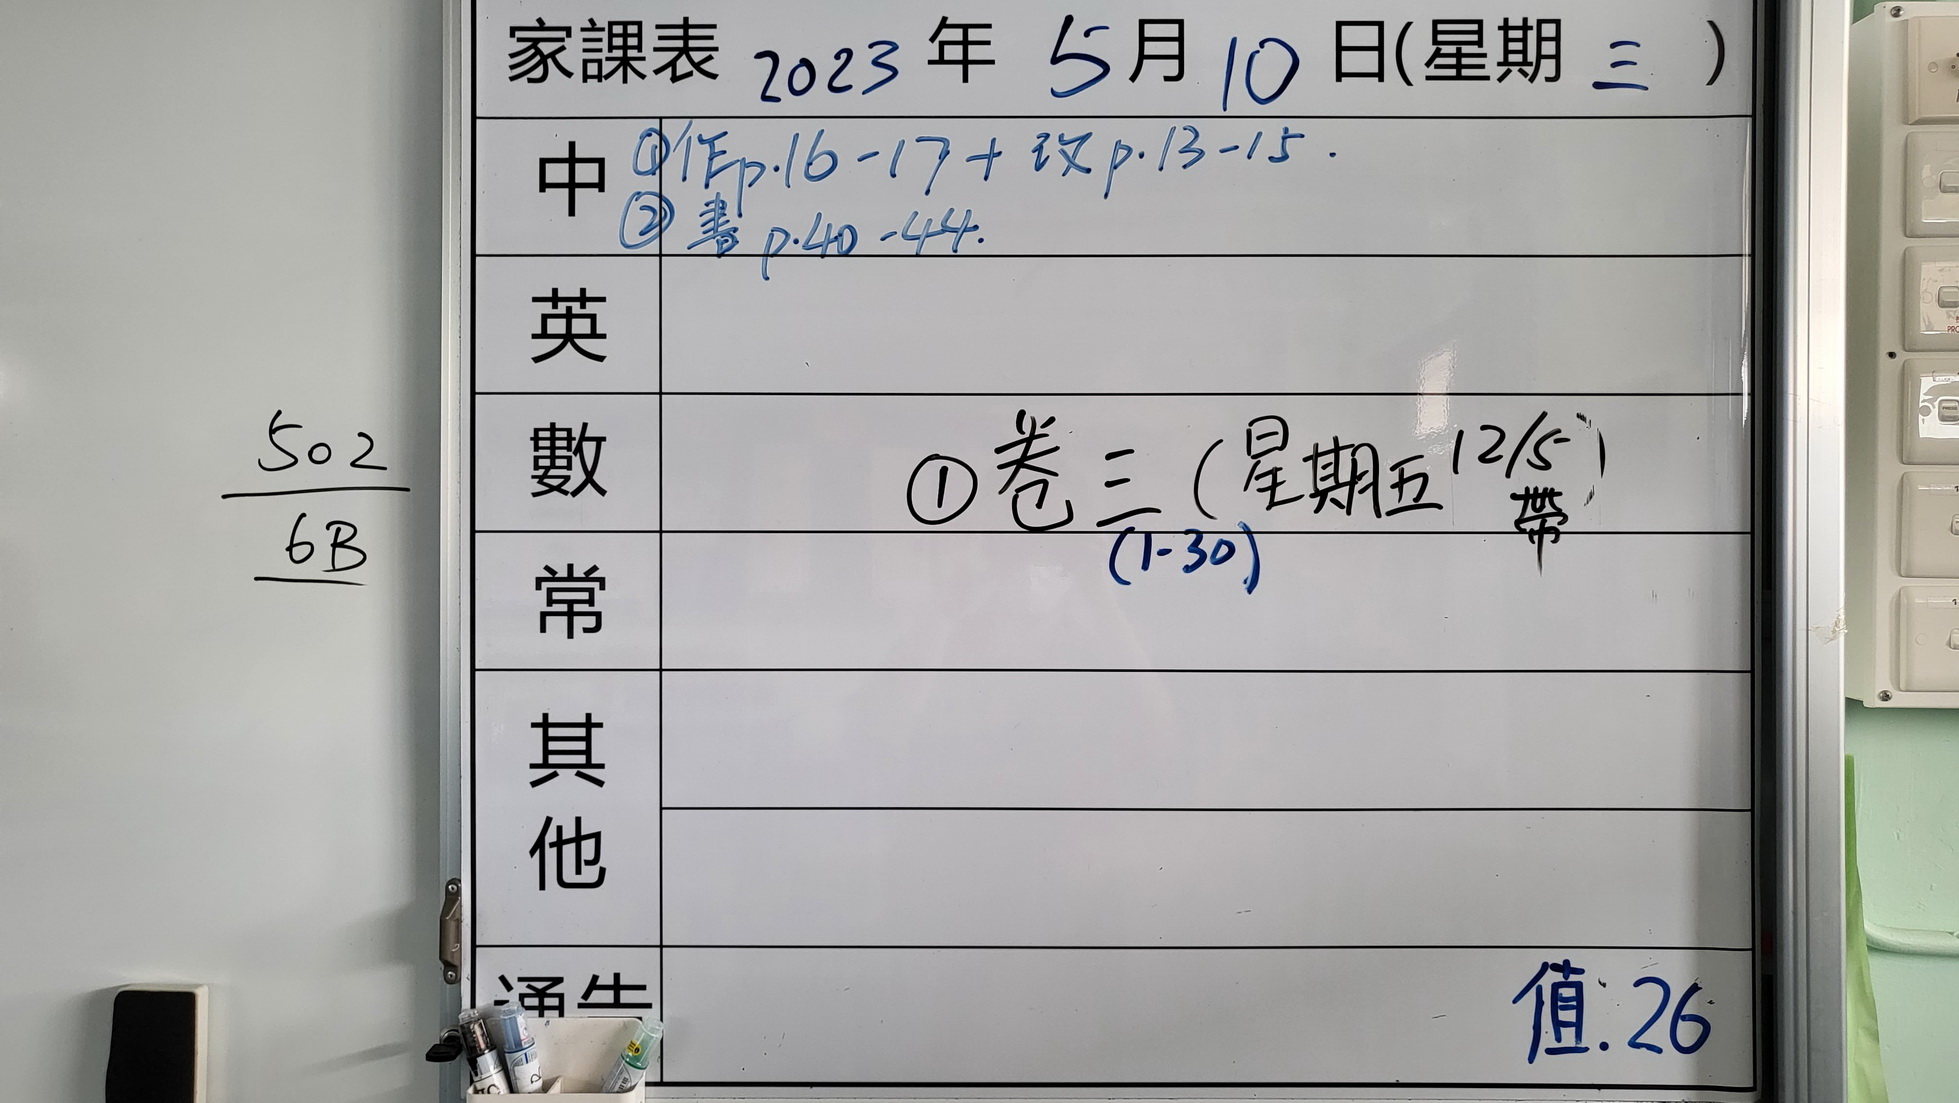 家課表 2023 年 5 月 10 日(星期 三 )
中 ①作p.16-17+改p.13-15.
②書p.40-44.
英
數 ①卷三(星期五 12/5帶)
(1-30)
常
其他
通告 值:26
502
6B